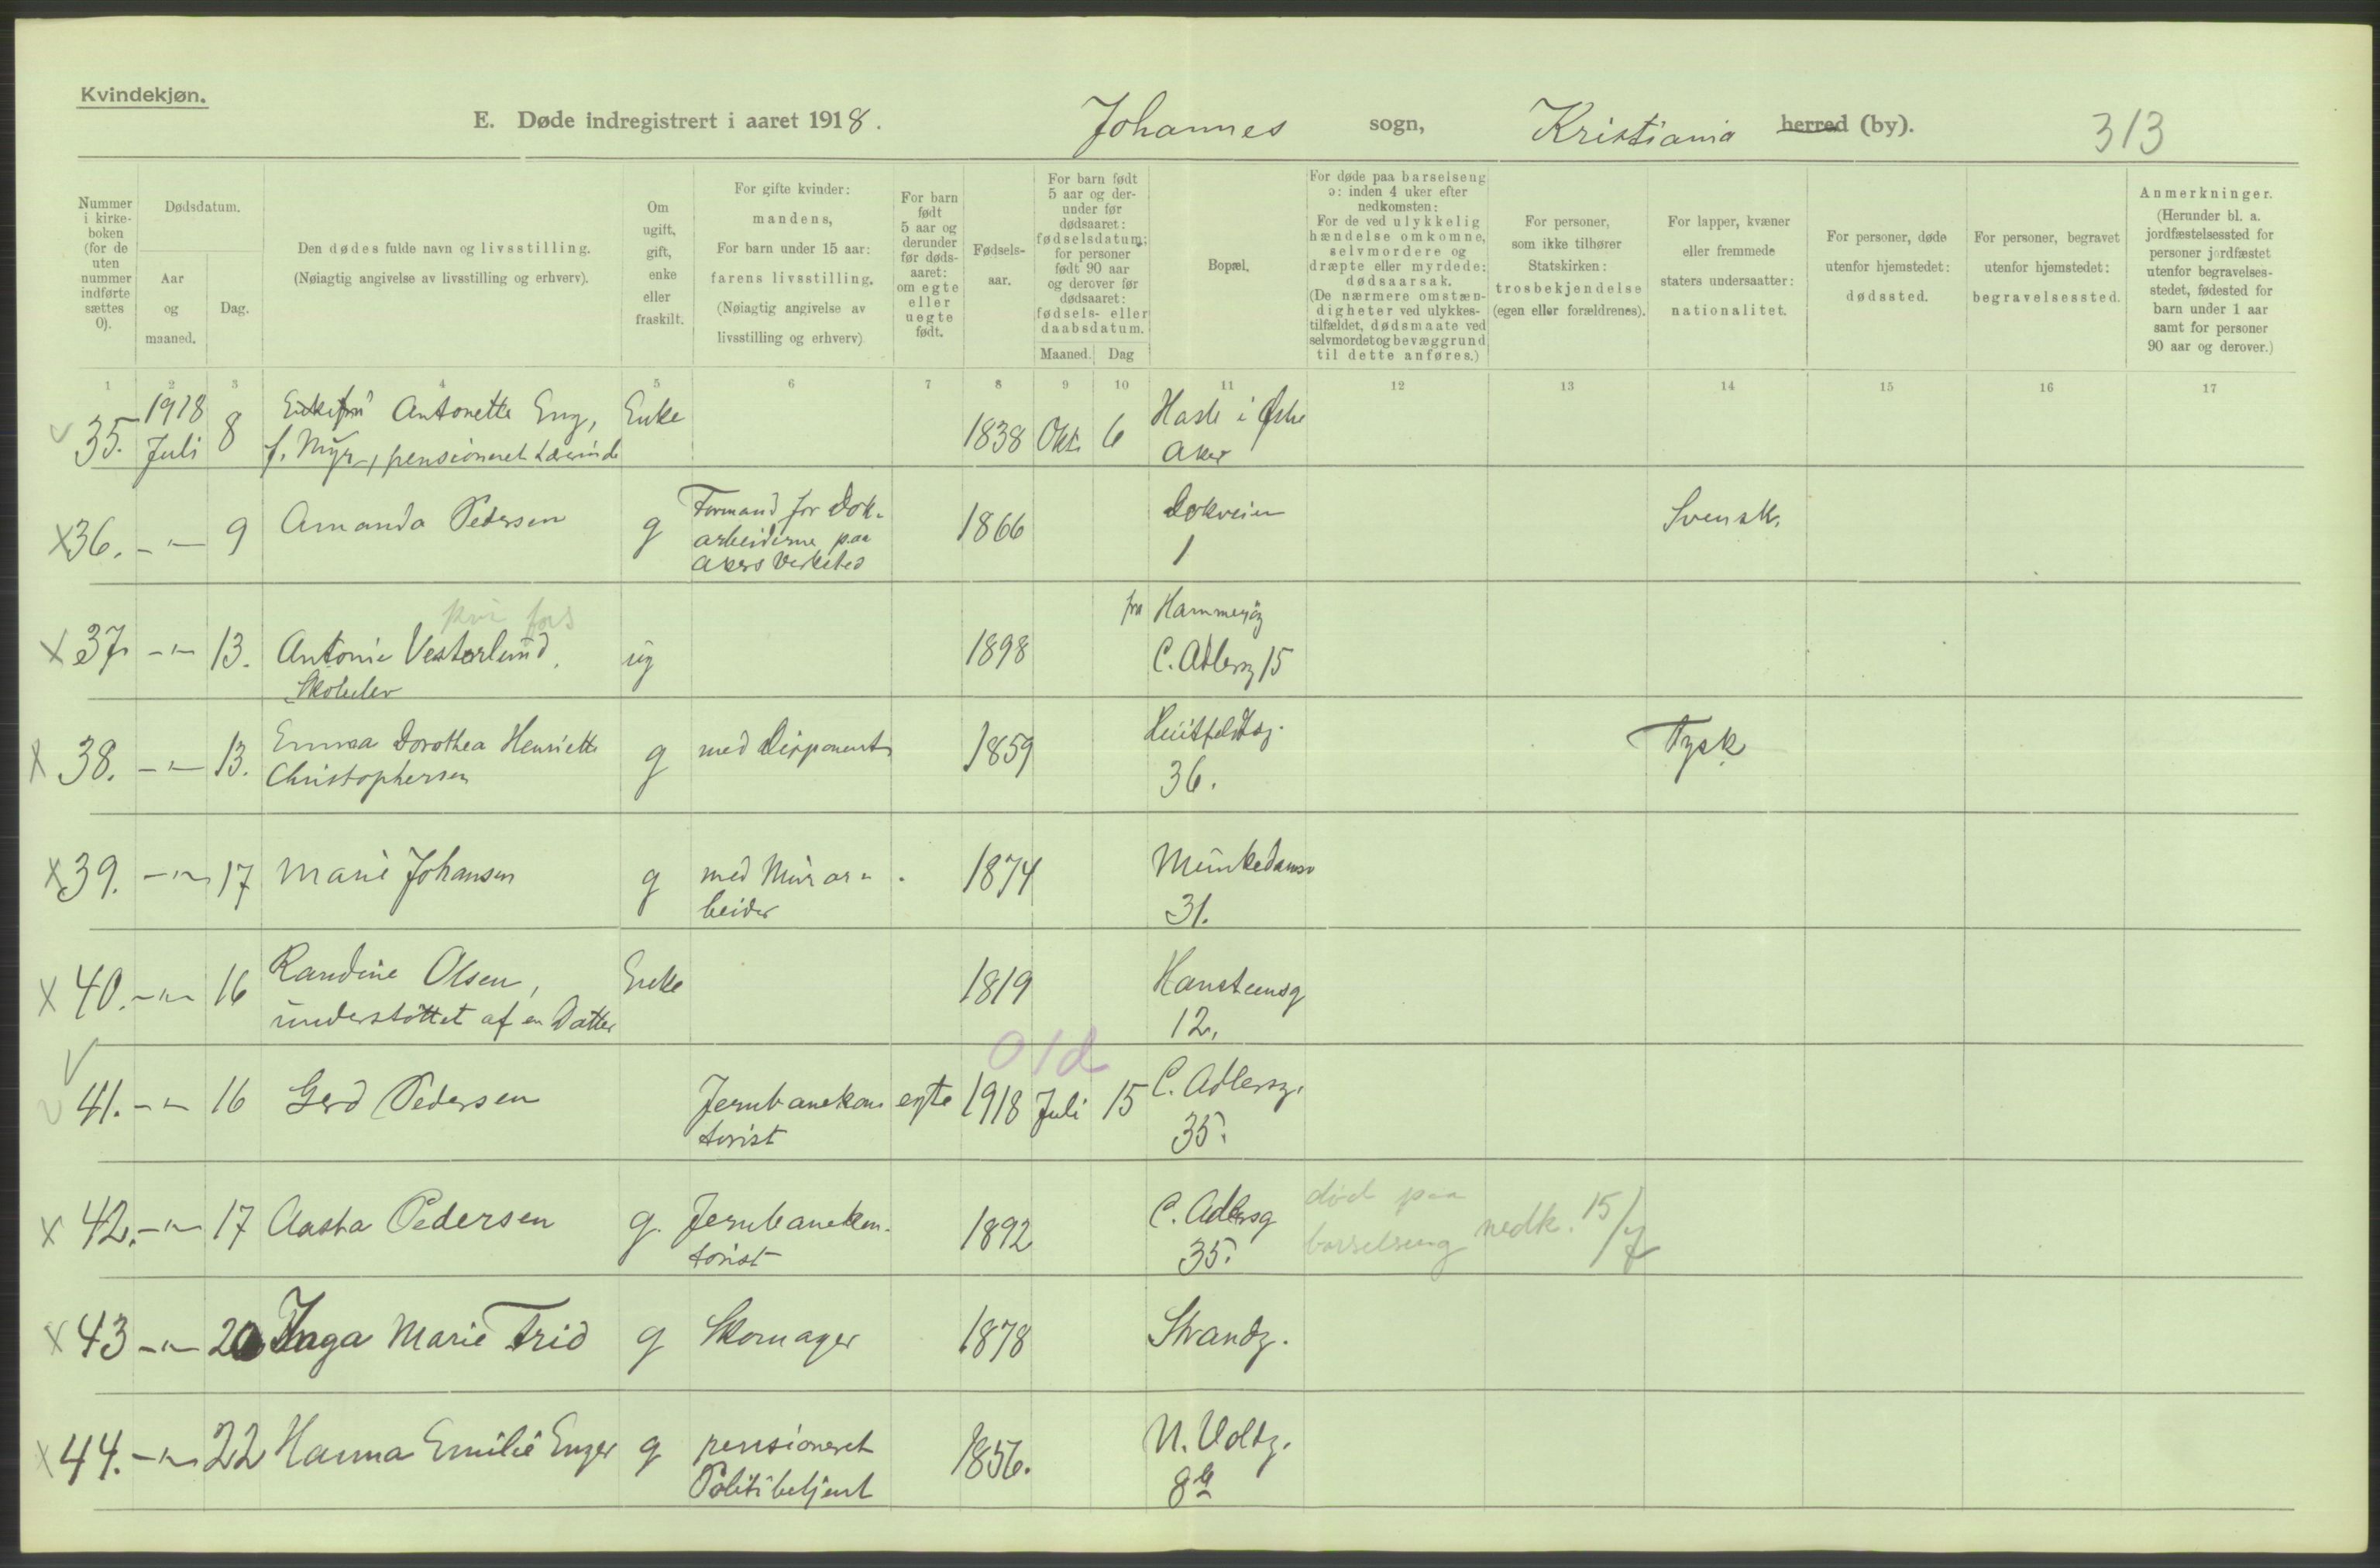 Kvindekjøn.
E. Døde indregistrert i aaret 1918. Johannes sogn, Kristiania herred (by). 313
Nummer i kirkeboken (for de uten nummer indførte sættes 0).
Dødsdatum.
Aar og maaned.
Dag.
Den dødes fulde navn og livsstilling.
(Nøiagtig angivelse av livsstilling og erhverv).
Om ugift, gift, enke eller fraskilt.
For gifte kvinder:
mandens,
For barn under 15 aar:
farens livsstilling.
(Nøiagtig angivelse av
livsstilling og erhverv)
For barn født 5 aar og derunder før dødsaaret: om egte eller uegte født.
Fødselsaar.
For barn født 5 aar og derunder før dødsaaret: fødselsdatum; for personer født 90 aar og derover før dødsaaret: fødsels- eller daabsdatum.
Maaned. Dag
Bopæl.
For døde paa barselseng
ɔ: inden 4 uker efter
nedkomsten:
For de ved ulykkelig
hændelse omkomne,
selvmordere og
dræpte eller myrdede:
dødsaarsak.
(De nærmere omstæn-
digheter ved ulykkes-
tilfældet, dødsmaate ved
selvmordet og bevæggrund
til dette anføres.)
For personer,
som ikke tilhører
Statskirken:
trosbekjendelse
(egen eller forældrenes).
For lapper, kvæner
eller fremmede
staters undersaatter:
nationalitet.
For personer, døde
utenfor hjemstedet:
dødssted.
For personer, begravet
utenfor hjemstedet:
begravelsessted.
Anmerkninger.
(Herunder bl. a.
jordfæstelsessted for
personer jordfæstet
utenfor begravelses-
stedet, fødested for
barn under 1 aar
samt for personer
90 aar og derover.)
1 2 3 4 5 6 7 8 9 10 11 12 13 14 15 16 17
35. 1918 Juli 8 Enkefru Antonette Eng, Enke 1838 Okt. 6 Hasle i Østre
f. Myr, pensioneret Lærerinde Aker
36. -"- 9 Amanda Pedersen g Formand for Dok- 1866 Dokveien Svensk.
arbeiderne paa 1
Akers Verksted
37. -"- 13. Antonie Vesterlund, ug 1898 fra Hammersg
C. Adlersg 15
38. -"- 13. Emma Dorothea Henriette g med Disponent 1859 Huitfeldtsg. Tysk
Christophersen 36.
39. -"- 17 Marie Johansen g med Murar- 1874 Munkedamsv
beider 31.
40. -"- 16 Randine Olsen, Enke 1819 Hansteensg
understøttet af en Datter 12.
01d
41. -"- 16 Gerd Pedersen Jernbanekon egte 1918 Juli 15 C. Adlersg.
torist 35.
42. -"- 17 Aasta Pedersen g. Jernbanekon- 1892 C. Adlersg død paa
torist 35. barselseng nedk. 15/7
43 -"- 20 Inga Marie Frid g Skomager 1878 Strandg.
44. -"- 22 Hanna Emilie Enger g pensioneret 1856. N. Voldg.
Politibetjent 8 b